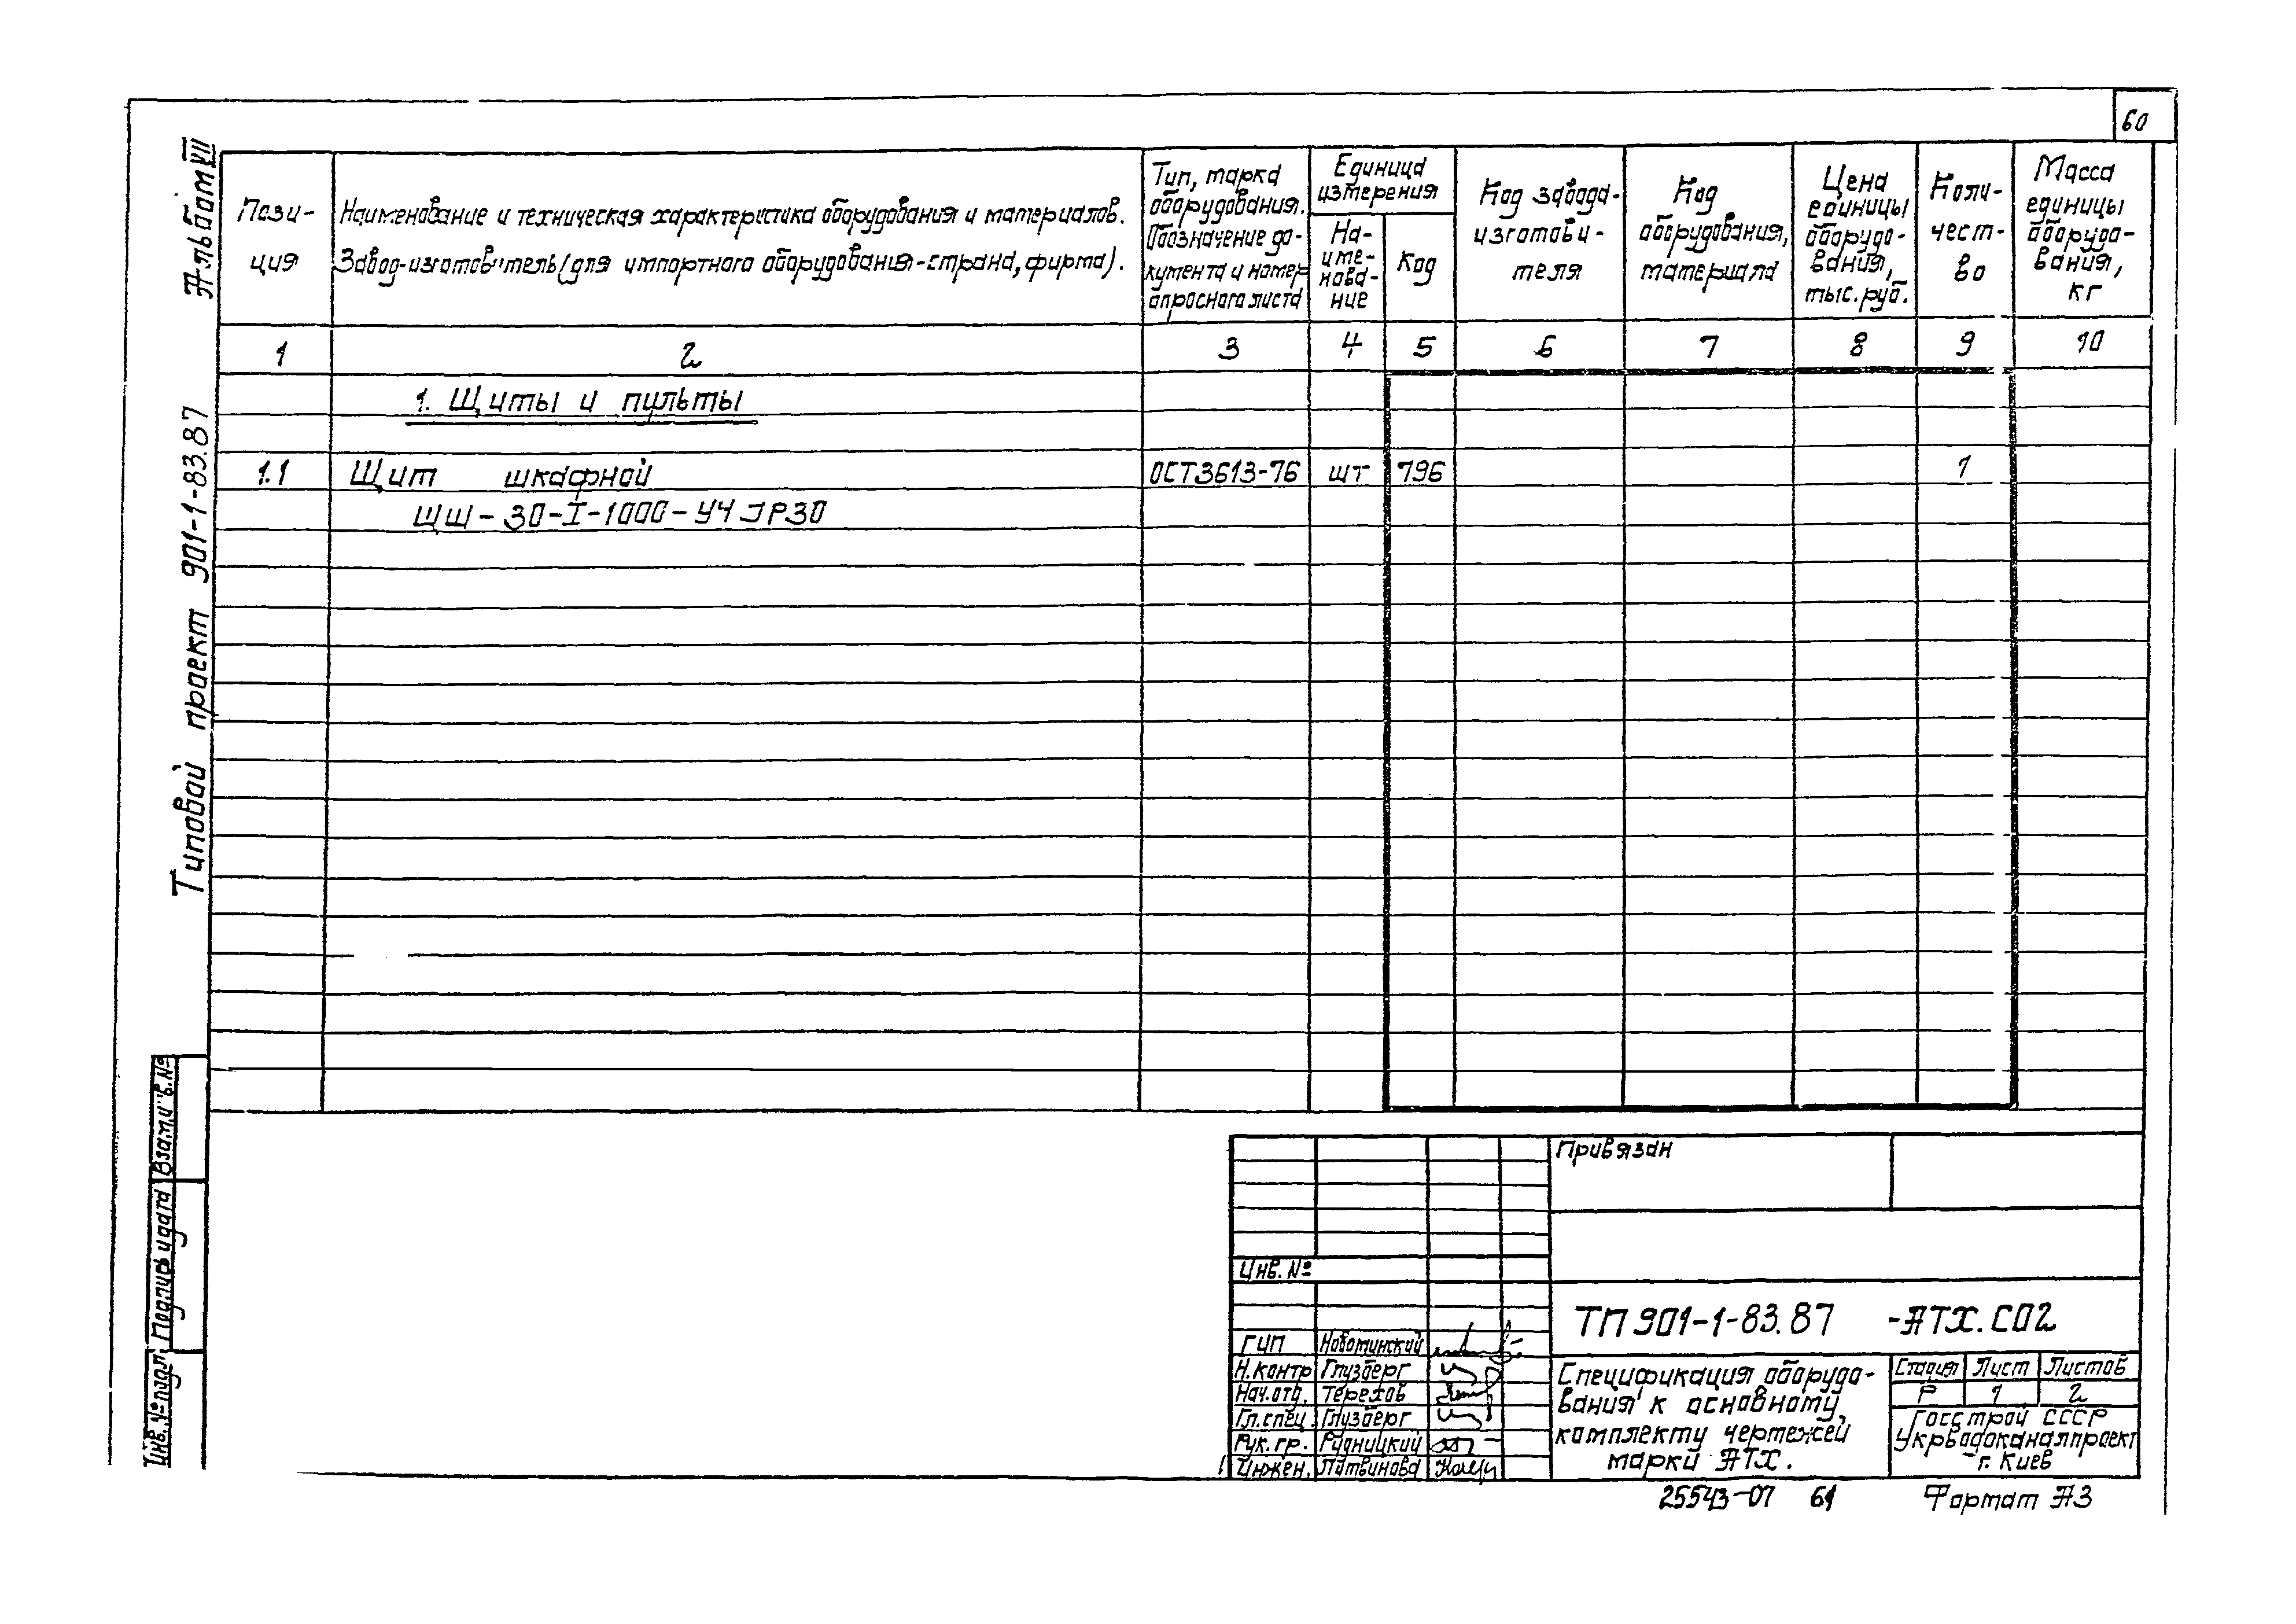 60
Альбом VII
Типовой проект 901-1-83.87
Пози-
ция
Наименование и техническая характеристика оборудования и материалов.
Завод-изготовитель (для импортного оборудования-страна, фирма).
Тип, марка
оборудования.
Обозначение до-
кумента и номер
опросного листа
Единица
измерения
На-
име-
нова-
ние
Код
Код завода-
изготови-
теля
Код
оборудования,
материала
Цена
единицы
оборудо-
вания,
тыс.руб.
Коли-
чест-
во
Масса
единицы
оборудо-
вания,
кг
1 2 3 4 5 6 7 8 9 10
1. Щиты и пульты
1.1 Щит шкафной ОСТ3613-76 шт 796 1
ЩШ-30-I-1000-У4 JP30
Взам.инв.№
Подпись и дата
Инв.№ подл
Привязан
Инв. №
ТП 901-1-83.87 -АТХ.СО2
ГИП Новоминский
Н.контр Глузберг
Нач.отд. Терехов
Гл.спец. Глузберг
Рук. гр. Рудницкий
Инжен. Литвинова
Спецификация оборудо-
вания к основному
комплекту чертежей
марки АТХ.
Стадия Лист Листов
Р 1 2
Госстрой СССР
Укрводоканалпроект
г. Киев
25543-07 61 Формат А3